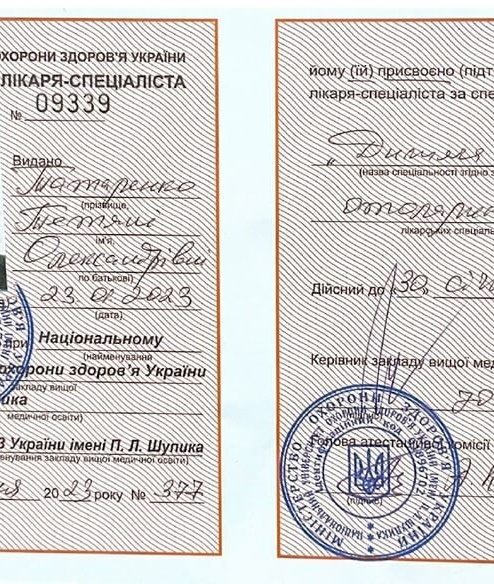 ОХОРОНИ ЗДОРОВ'Я УКРАЇНИ
ЛІКАРЯ-СПЕЦІАЛІСТА
№ 09339
Видано
Татаренко
(прізвище,
Тетяні
ім'я,
Олександрівні
по батькові)
23.01.2023
(дата)
при Національному
(найменування
охорони здоров'я України
закладу вищої
ика
медичної освіти)
З України імені П. Л. Шупика
менування закладу вищої медичної освіти)
2023 року № 377
йому (їй) присвоєно (підт
лікаря-спеціаліста за спе
„Дитяча
(назва спеціальності згідно з
отоларин
лікарських спеціаль
Дійсний до „30„ січ
Керівник закладу вищої мед
Голова атестаційної комісії
(підпис)
МІНІСТЕРСТВО ОХОРОНИ ЗДОРОВ'Я УКРАЇНИ